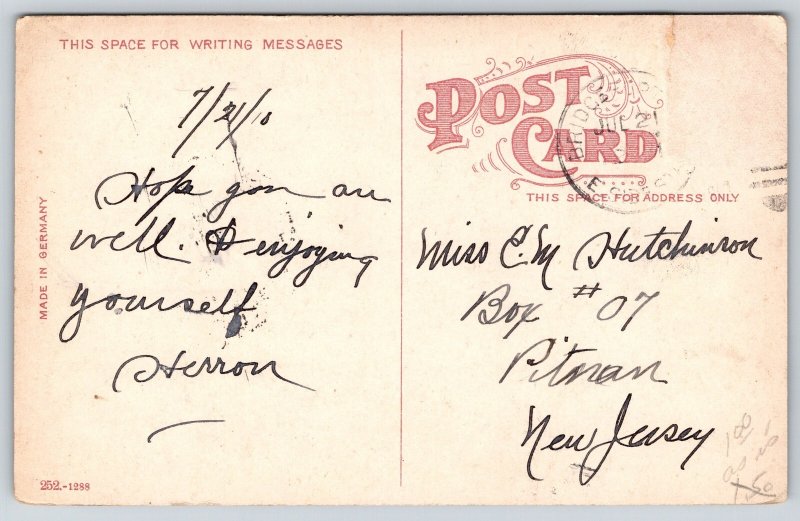 THIS SPACE FOR WRITING MESSAGES
7/21/10
Hope you are
well. & enjoying
yourself
Herron
MADE IN GERMANY
252.-1288
POST
CARD
JUL 21
THIS SPACE FOR ADDRESS ONLY
Miss C. M Hutchinson
Box # 07
Pitman
New Jersey
1.00
as is
1.50